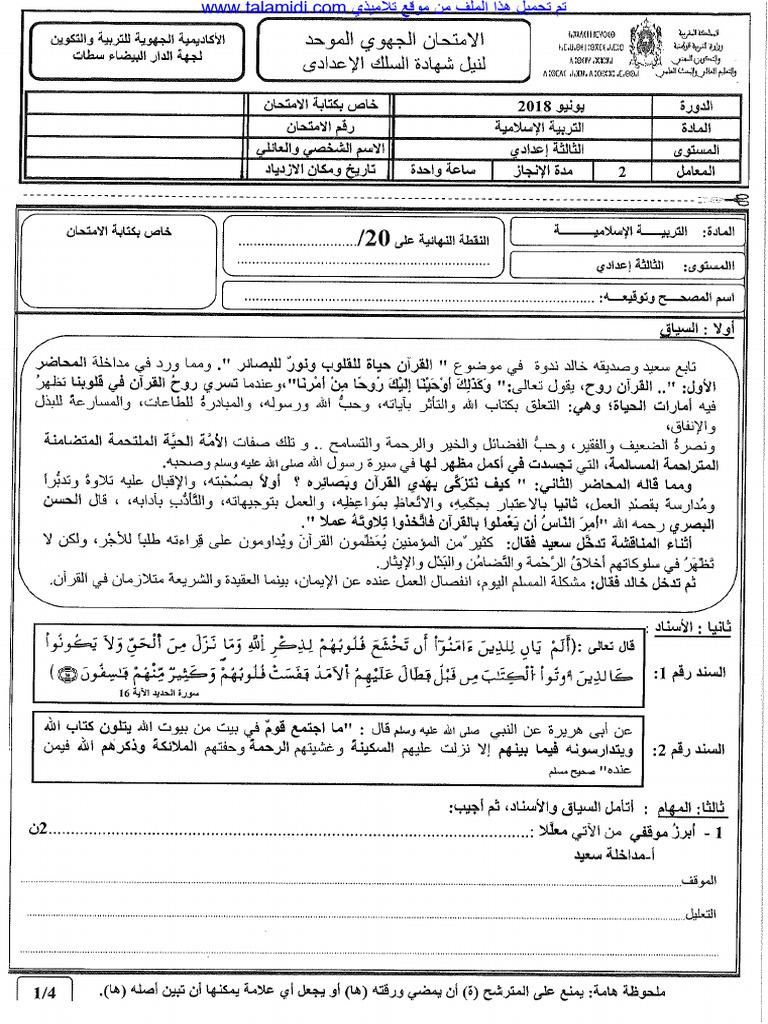 تم تحميل هذا الملف من موقع تلاميذي www.talamidi.com
المملكة المغربية
وزارة التربية الوطنية
والتكوين المهني
والتعليم العالي والبحث العلمي
الامتحان الجهوي الموحد
لنيل شهادة السلك الإعدادي
الأكاديمية الجهوية للتربية والتكوين
لجهة الدار البيضاء سطات
الدورة يونيو 2018 خاص بكتابة الامتحان
المادة التربية الإسلامية رقم الامتحان
المستوى الثالثة إعدادي الاسم الشخصي والعائلي
المعامل 2 مدة الإنجاز ساعة واحدة تاريخ ومكان الازدياد
المادة: التربيــة الإسلاميــة
المستوى: الثالثة إعدادي
النقطة النهائية على 20/..............................
خاص بكتابة الامتحان
اسم المصحح وتوقيعه: ..............................
أولا : السياق
تابع سعيد وصديقه خالد ندوة في موضوع " القرآن حياة للقلوب ونور للبصائر ". ومما ورد في مداخلة المحاضر
الأول: ".. القرآن روح، يقول تعالى:" وَكَذَلِكَ أَوْحَيْنَا إِلَيْكَ رُوحًا مِنْ أَمْرِنَا"،وعندما تسري روحُ القرآن في قلوبنا تظهرُ
فيه أمارات الحياة؛ وهي: التعلق بكتاب الله والتأثر بآياته، وحبُّ الله ورسوله، والمبادرة للطاعات، والمسارعة للبذل
والإنفاق،
ونصرةُ الضعيف والفقير، وحبُّ الفضائل والخير والرحمة والتسامح .. و تلك صفات الأمّة الحيَّة الملتحمة المتضامنة
المتراحمة المسالمة، التي تجسدت في أكمل مظهر لها في سيرة رسول الله صلى الله عليه وسلم وصحبه.
ومما قاله المحاضر الثاني: " كيف نتزكّى بهَدي القرآن وبَصائره ؟ أولاً بصُحبته، والإقبال عليه تلاوةً وتدبُّراً
ومُدارسة بقصْدِ العمل، ثانيا بالاعتبار بحِكَمِه، والاتّعاظِ بمَواعِظِه، والعمل بتوجيهاته، والتَّأدُّبِ بآدابه، ، قال الحسن
البصري رحمه الله "أُمِرَ النَّاسُ أن يَعْمَلوا بالقرآن فاتَّخذوا تِلاوتَهُ عملا ".
أثناء المناقشة تدخّل سعيد فقال: كثيرٌ من المؤمنين يُعَظّمون القرآن ويُداومون على قراءته طلباً للأجْر، ولكن لا
تَظْهَرُ في سلوكاتهم أخلاقُ الرَّحمة والتضامُن والبَذْل والإيثار.
ثم تدخل خالد فقال: مشكلة المسلم اليوم، انفصال العمل عنده عن الإيمان، بينما العقيدة والشريعة متلازمان في القرآن.
ثانيا : الأسناد :
السند رقم 1:
قال تعالى :(أَلَمْ يَانِ لِلذِينَ ءَامَنُوٓاْ أَن تَخْشَعَ قُلُوبُهُمْ لِذِكْرِ اِ۬للَّهِ وَمَا نَزَلَ مِنَ اَ۬لْحَقِّ وَلَا يَكُونُواْ
كَالذِينَ أُوتُواْ اُ۬لْكِتَٰبَ مِن قَبْلُ فَطَالَ عَلَيْهِمُ اُ۬لْأَمَدُ فَقَسَتْ قُلُوبُهُمْ وَكَثِيرٌ مِّنْهُمْ فَٰسِقُونَ)
سورة الحديد الآية 16
السند رقم 2:
عن أبي هريرة عن النبي صلى الله عليه وسلم قال : "ما اجتمع قومٌ في بيت من بيوت الله يتلون كتاب الله
ويتدارسونه فيما بينهم إلا نزلت عليهم السكينة وغشيتهم الرحمة وحفتهم الملائكة وذكرهم الله فيمن
عنده" صحيح مسلم
ثالثا: المهام : أتأمل السياق والأسناد، ثم أجيب:
1 - أبرزُ موقفي من الآتي معلّلا :..............................2ن
أ-مداخلة سعيد
الموقف..............................
التعليل..............................
ملحوظة هامة: يمنع على المترشح (ة) أن يمضي ورقته (ها) أو يجعل أي علامة يمكنها أن تبين أصله (ها).
1/4